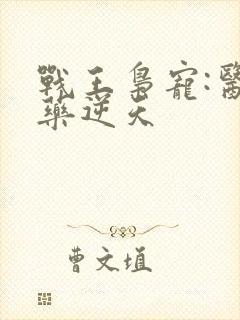 戰王梟寵:醫
藥逆天
曹文塡